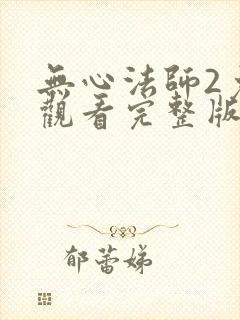 無心法師2
觀看完整版
郁蕾娣